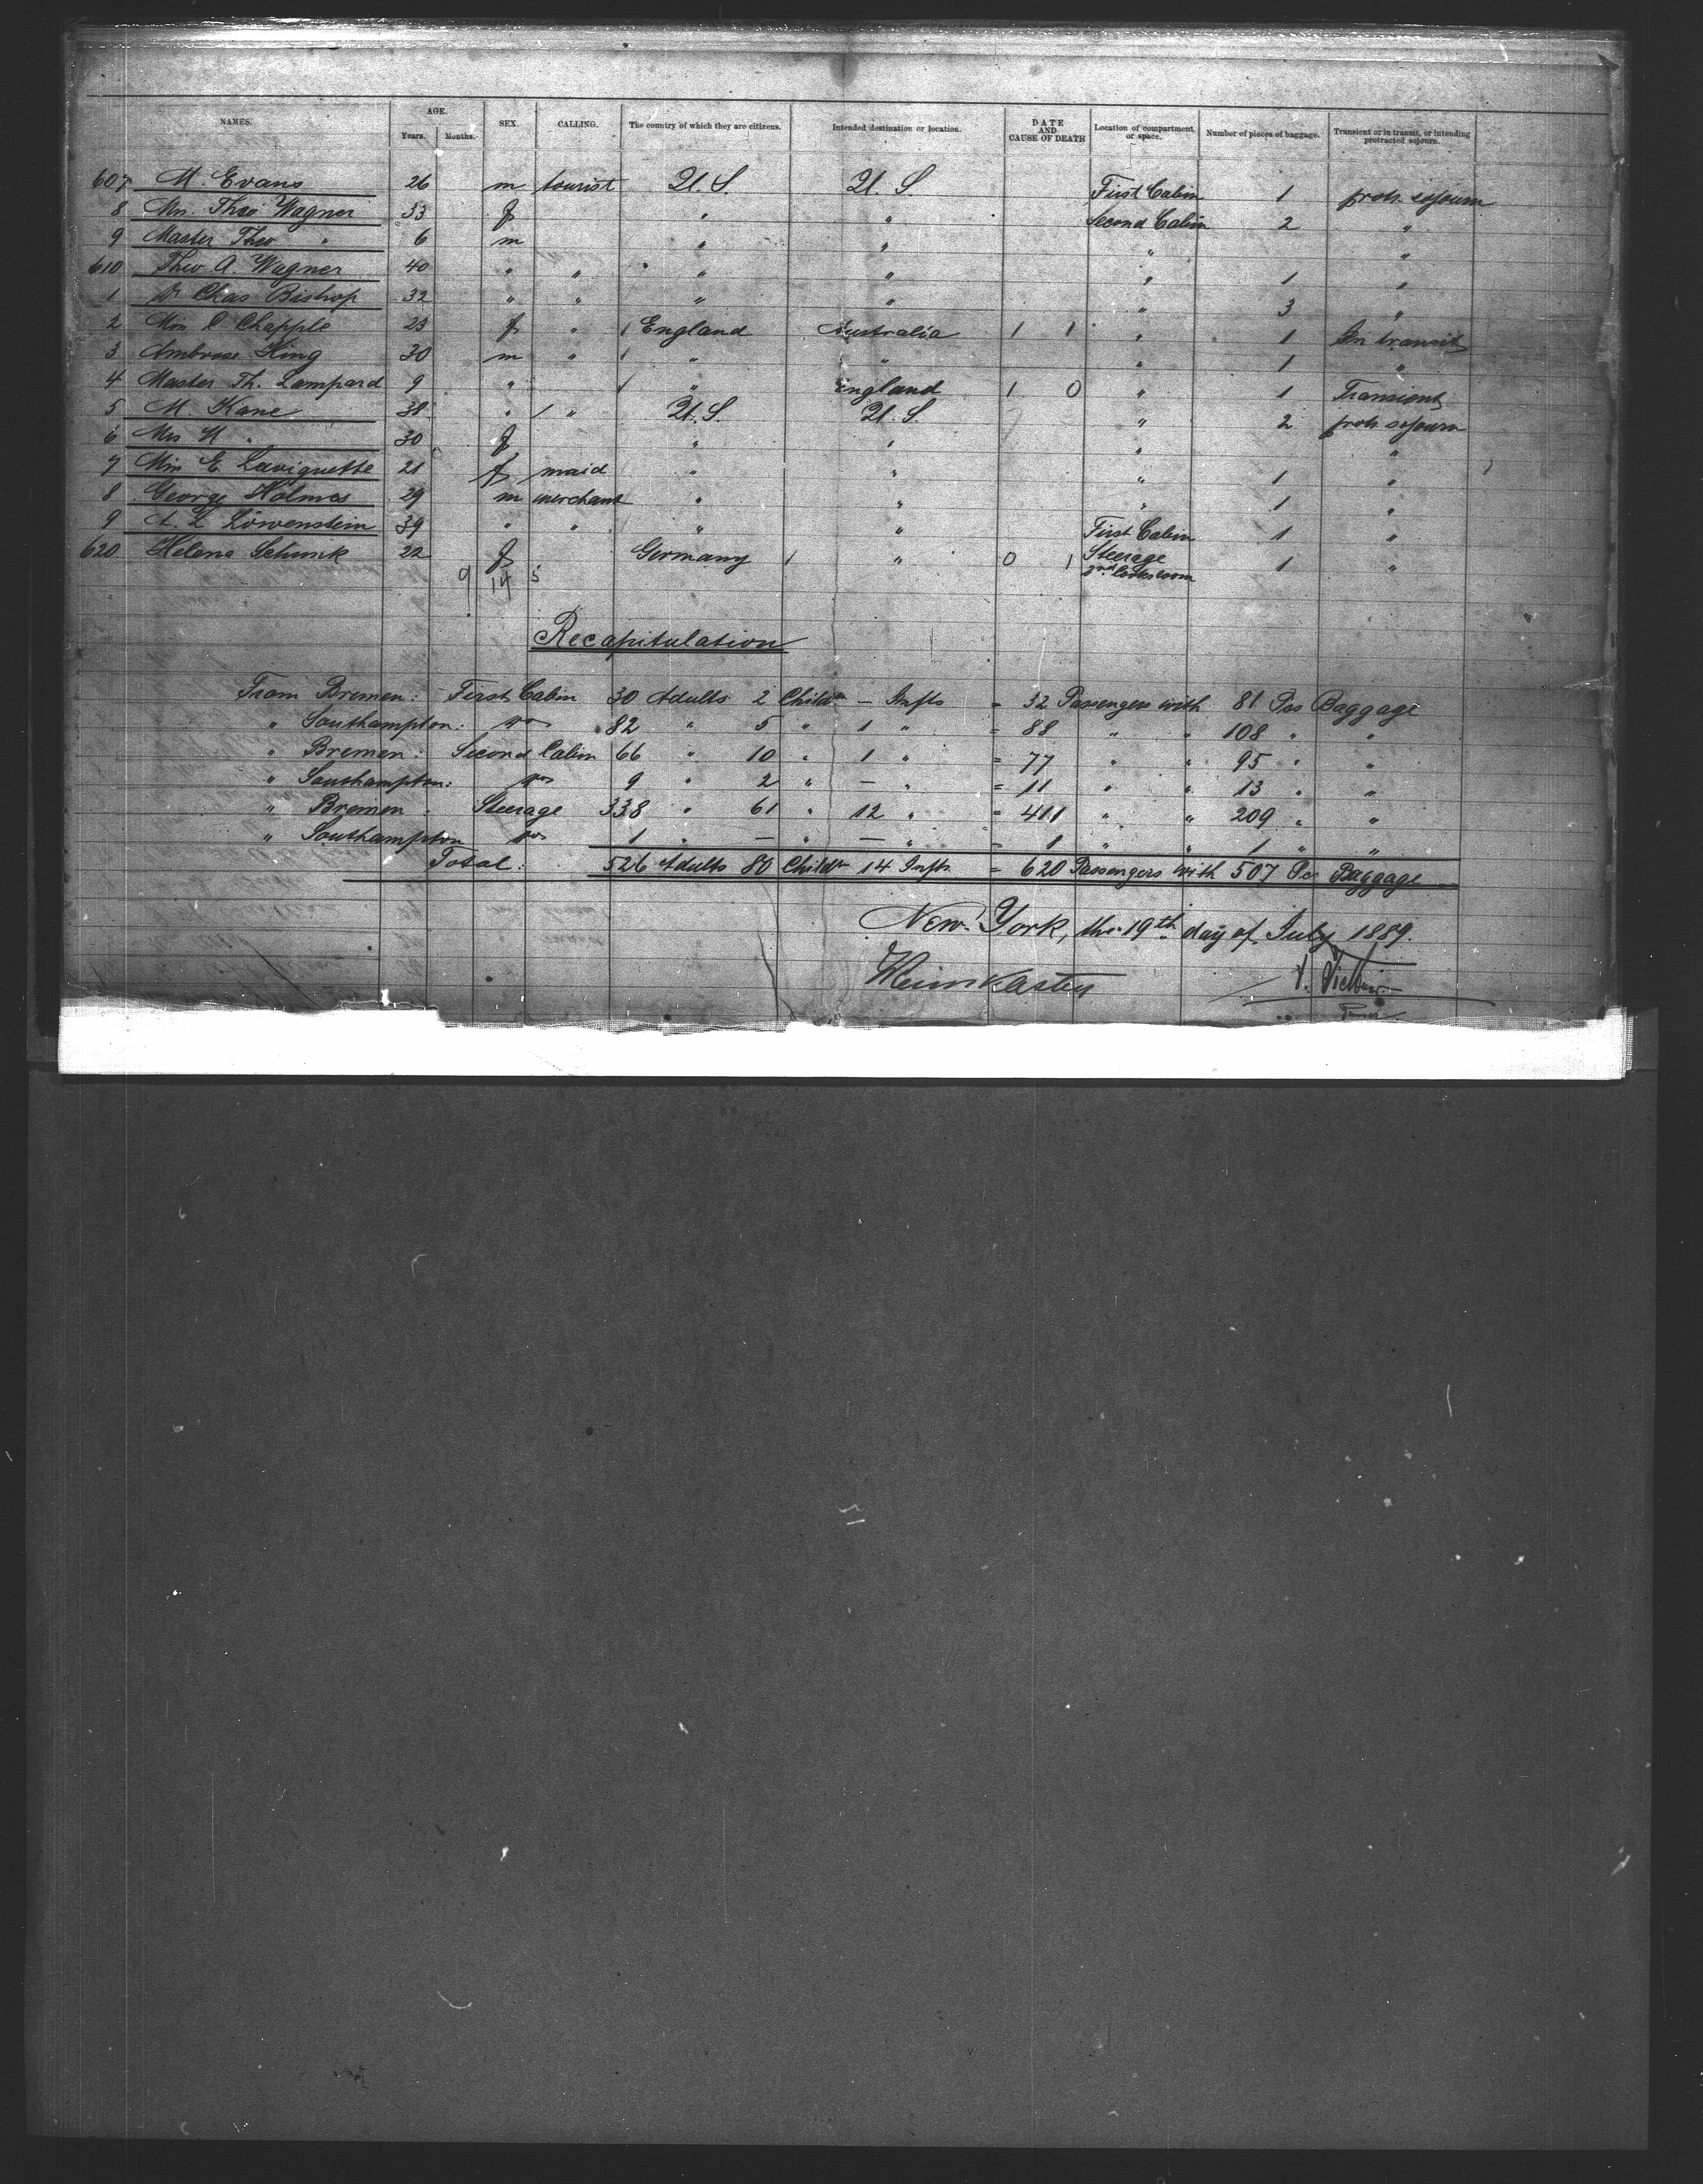 NAMES. AGE. Years. Months. SEX. CALLING. The country of which they are citizens. Intended destination or location. DATE AND CAUSE OF DEATH Location of compartment or space. Number of pieces of baggage. Transient or in transit, or intending protracted sojourn.
607 M. Evans 26 m tourist U. S. U. S First Cabin 1 protr. sojourn
8 Mrs. Theo Wagner 33 f " " Second Cabin 2 "
9 Master Theo " 6 m " " " "
610 Theo A. Wagner 40 " " " " " 1 "
1 Dr Chas Bishop 32 " " " " " 3 "
2 Miss C. Chapple 23 f " 1 England Australia 1 1 " 1 In transit
3 Ambrose King 30 m " 1 " " " 1 "
4 Master Th. Lampard 9 " " England 1 0 " 1 Transient
5 M Kane 38 " / " U. S. U. S. " 2 protr sojourn
6 Mrs " 30 f " " " "
7 Miss E. Laviguette 21 f maid " " " 1 "
8 George Holmes 29 m merchant " " " 1 "
9 A. L Löwenstein 39 " " " " First Cabin 1 "
620 Helene Schunk 22 f Germany 1 " 0 1 Steerage 1 "
9 14 5 2nd
Recapitulation
From Bremen: First Cabin 30 Adults 2 Childn — Infts = 32 Passengers with 81 Pcs Baggage
" Southampton: 82 " 5 " 1 " = 88 " " 108 " "
" Bremen: Second Cabin 66 " 10 " 1 " = 77 " " 95 " "
" Southampton: 9 " 2 " — " = 11 " " 13 " "
" Bremen: Steerage 338 " 61 " 12 " = 411 " " 209 " "
" Southampton 1 " — " — " = 1 " " 1 " "
Total: 526 Adults 80 Childn 14 Infts = 620 Passengers with 507 Pcs Baggage
New York, the 19th day of July 1889.